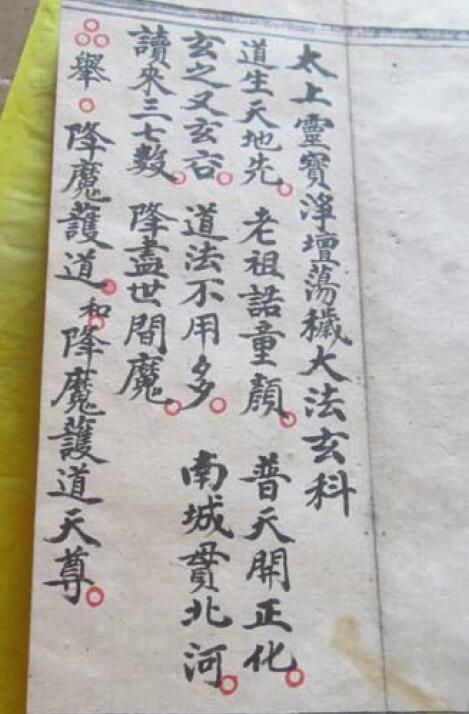 太上靈寶淨壇蕩穢大法玄科
道生天地先。老祖詰童顏。普天開正化。
玄之又玄。道法不用多。南城貫北河。
讀來三七數。降盡世間魔。
舉。降魔護道。和。降魔護道天尊。